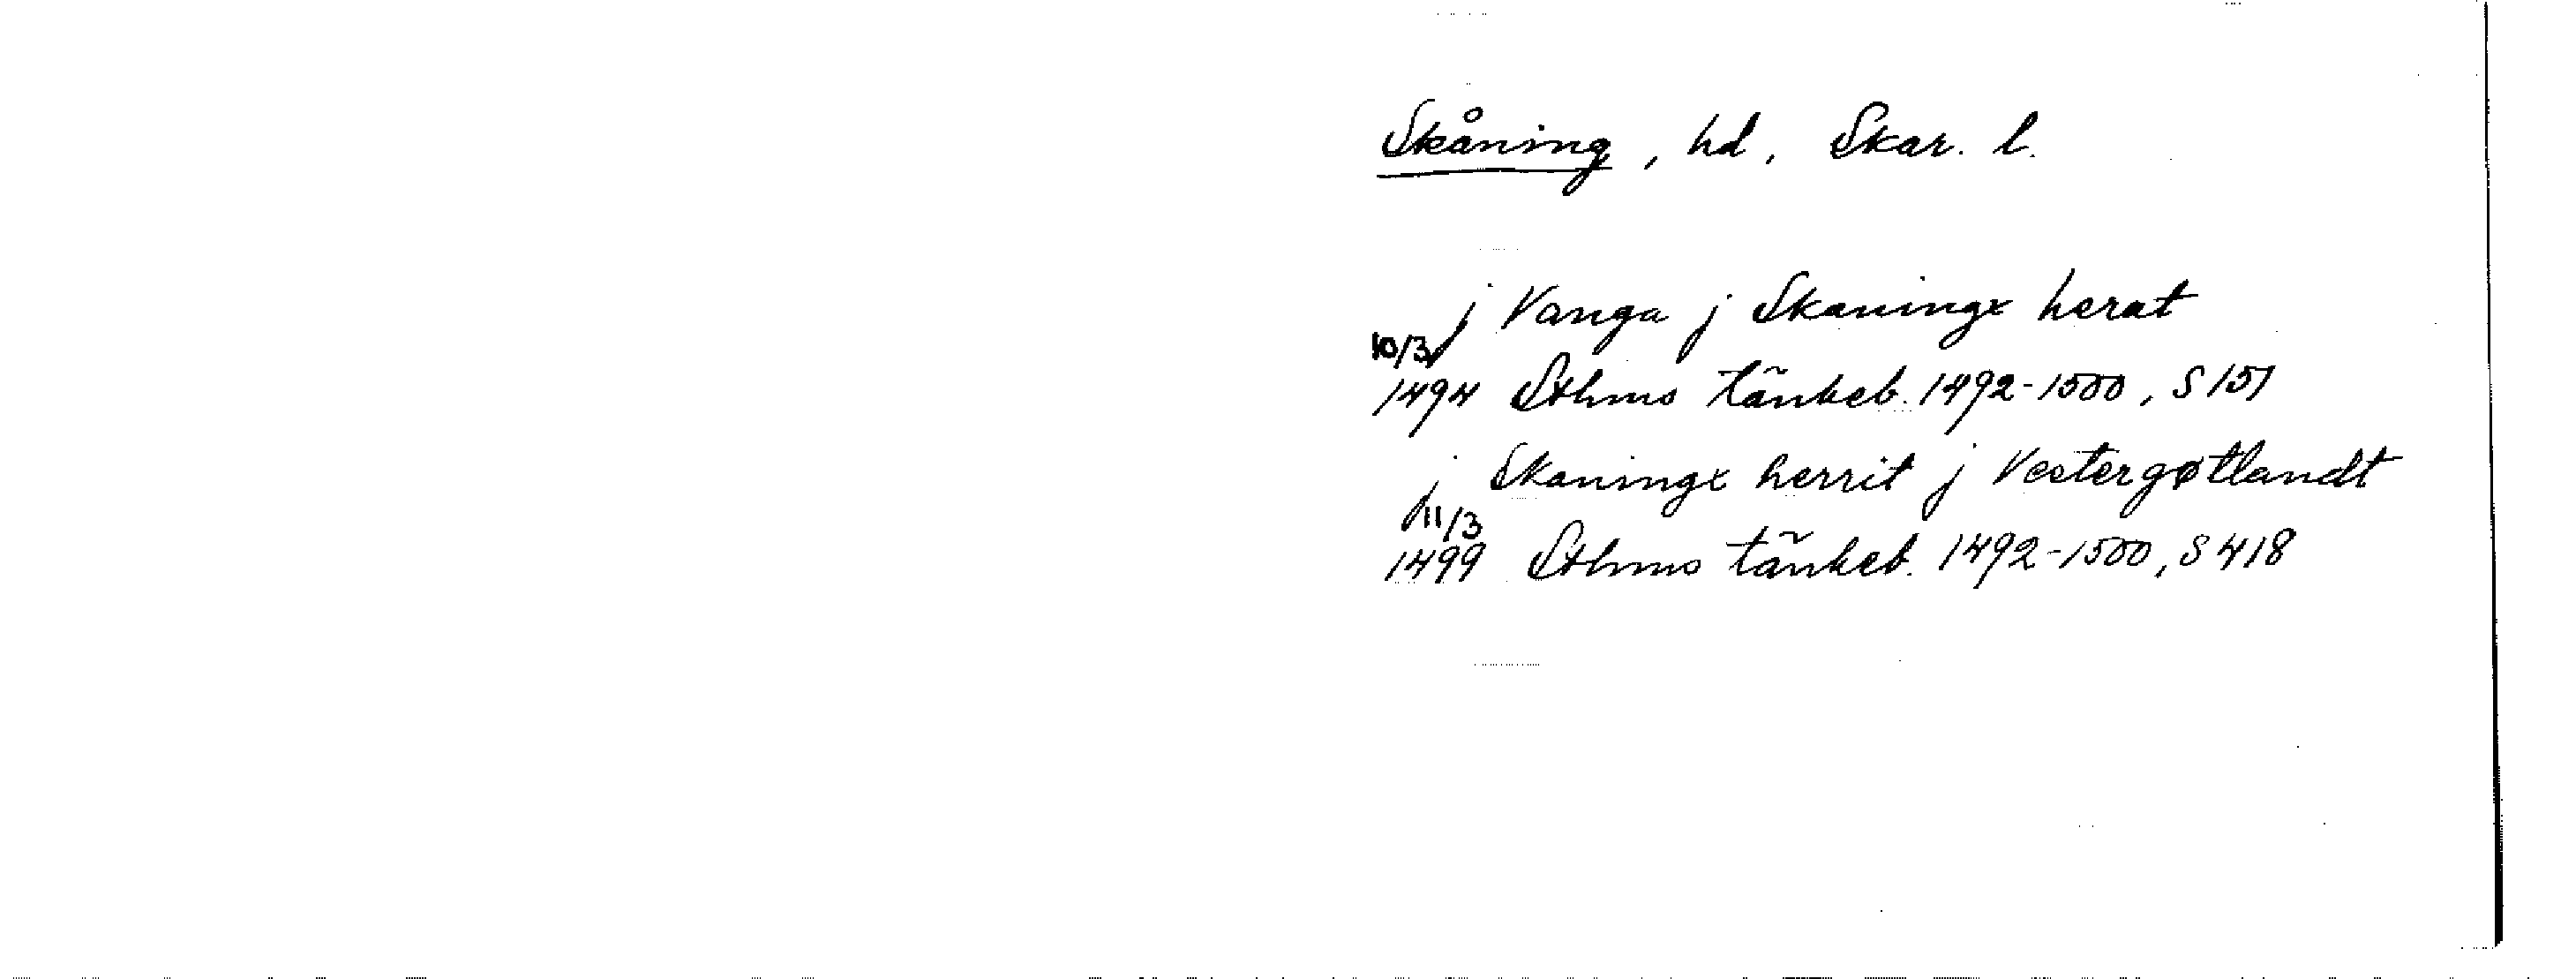 Skåning, hd, Skar. l.
j Vanga j Skaningx herat
10/3
1494 Sthms tänkeb. 1492-1500, S 151
j Skaningx herrit j Vestergøtlandt
11/3
1499 Sthms tänkeb. 1492-1500, S 418